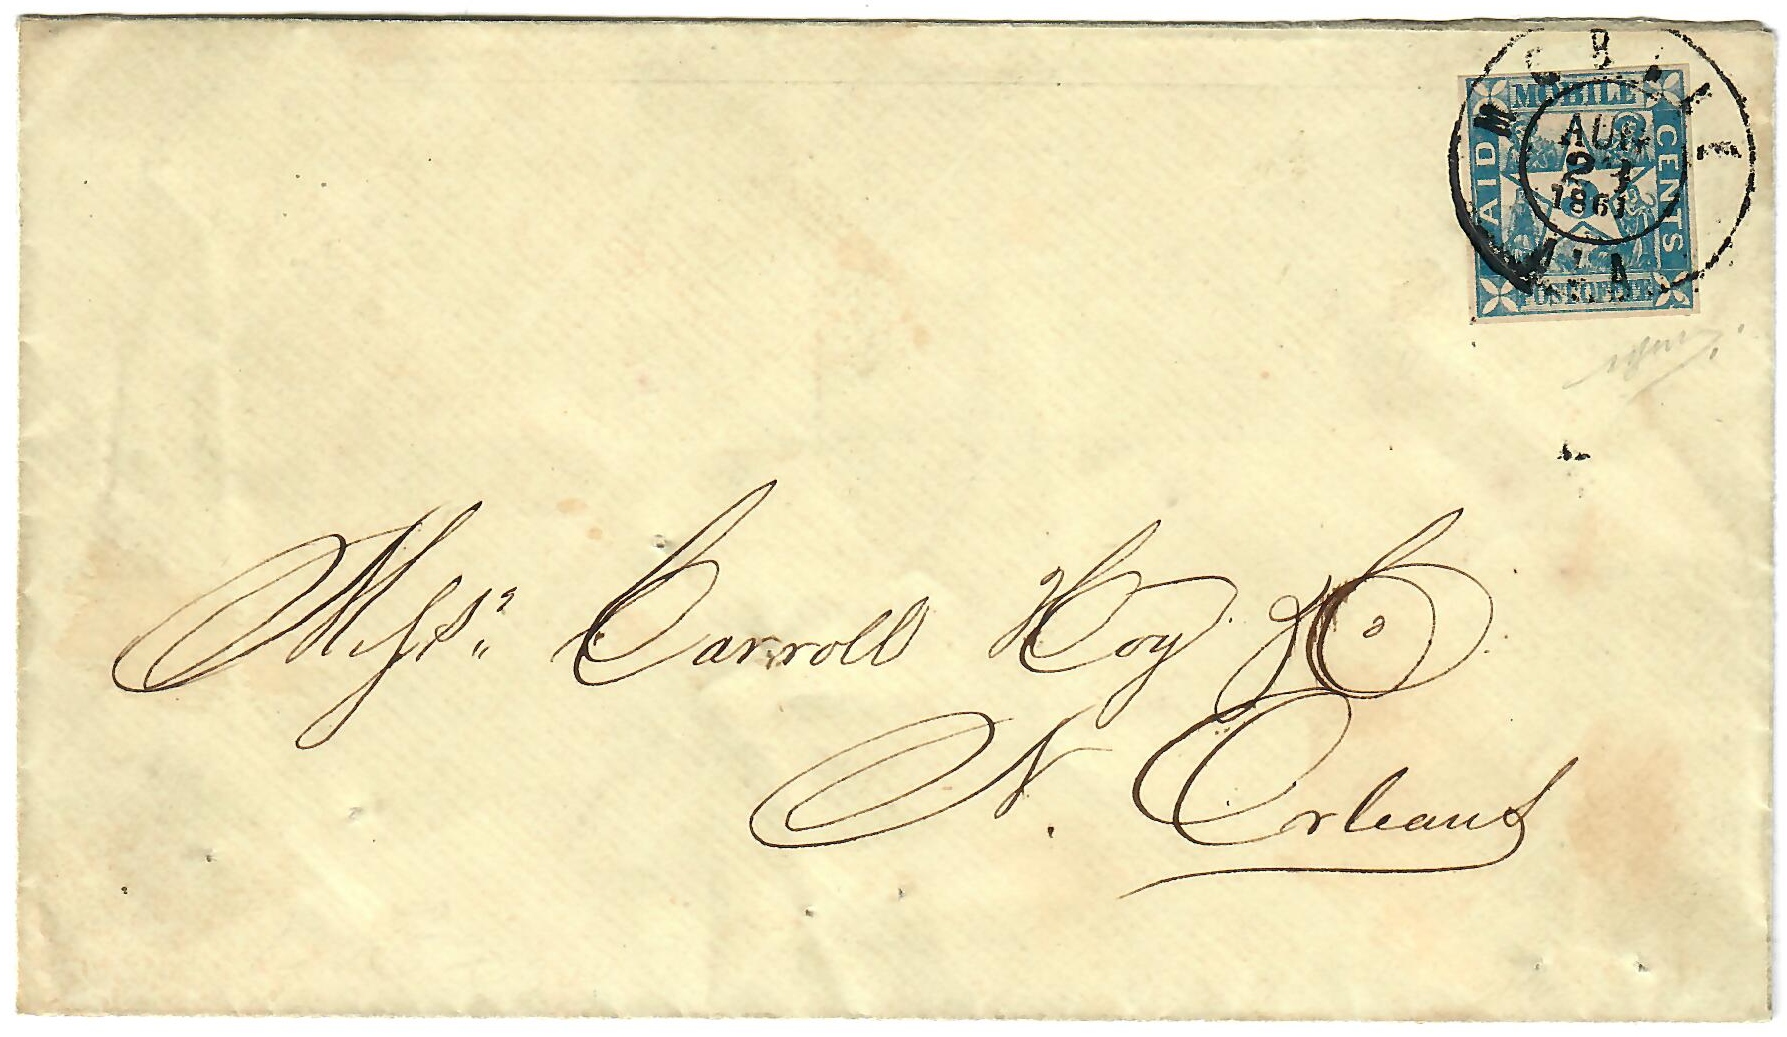 MOBILE
PAID
5
CENTS
POST OFFICE
MOBILE
AUG
1861
ALA
Messrs. Carroll Hoy & Co.
N. Orleans